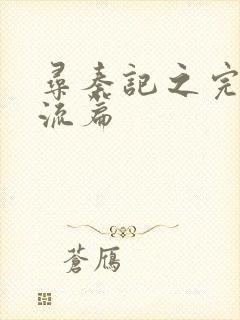 尋秦記之完
流篇
蒼鴈